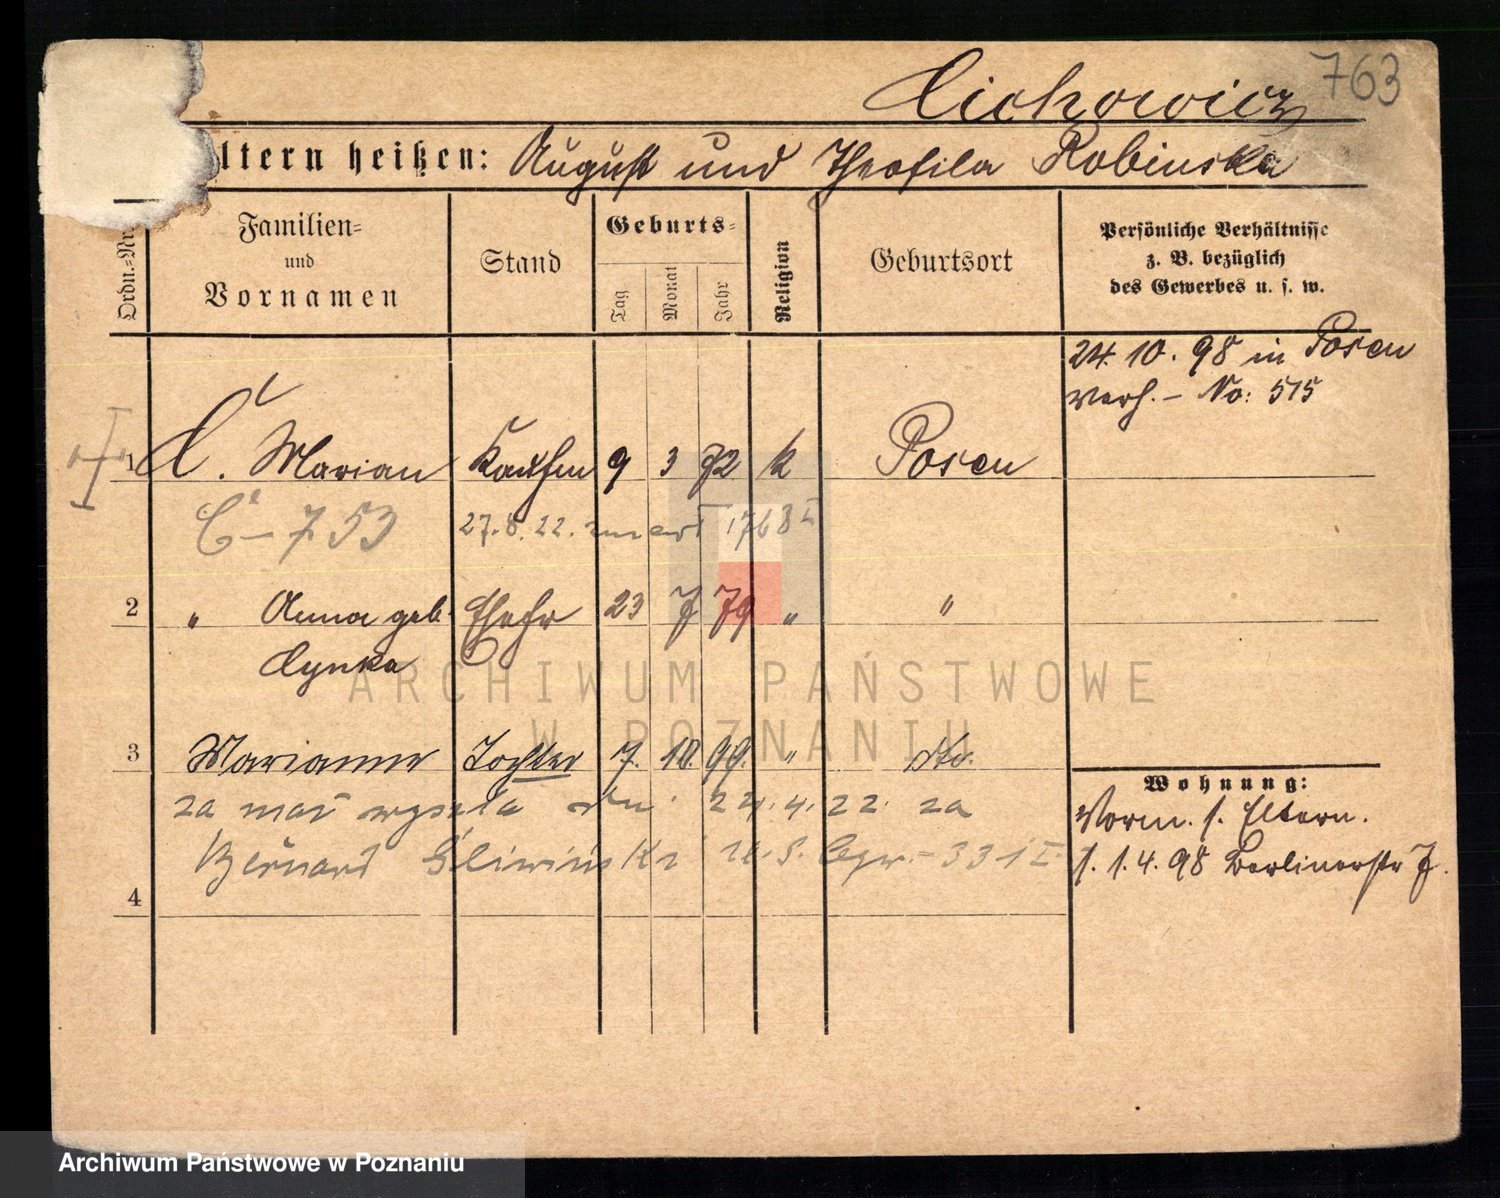 Cichowicz 763
ltern heißen: August und Theofila Robinska
Ordn.-Nr. Familien- und Vornamen Stand Geburts- Tag Monat Jahr Religion Geburtsort Persönliche Verhältnisse z. B. bezüglich des Gewerbes u. s. w.
24. 10. 98 in Posen
verh. – No: 515
1 C. Marian Kaufm 9 3 72 k Posen
C – 753 27. 8. 22. zmarł 1768 I
2 " Anna geb. Ehefr 23 7 79 " "
Cynka
3 Marianne Tochter 7. 10. 99. " dto.
Wohnung:
za mąż wyszła dn. 24. 4. 22. za
Vorm. s. Eltern.
Bernard Śliwiński 331 I
1. 4. 98 Berlinerstr 7.
4
ARCHIWUM PAŃSTWOWE
W POZNANIU
Archiwum Państwowe w Poznaniu